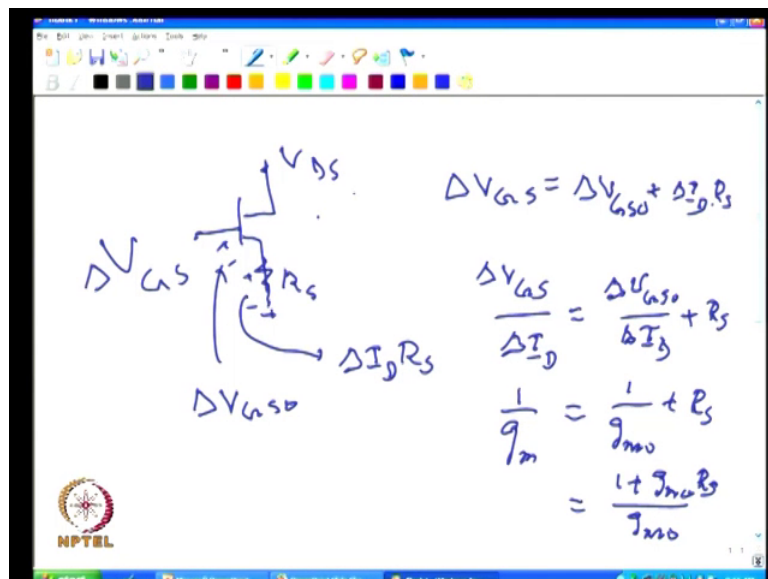 File Edit View Insert Actions Tools Help
V_DS
ΔV_GS = ΔV_GSO + ΔI_D.R_S
ΔV_GS
R_S
ΔI_D R_S
ΔV_GSO
ΔV_GS / ΔI_D = ΔV_GSO / ΔI_D + R_S
1 / g_m = 1 / g_mo + R_S
= 1 + g_mo R_S / g_mo
NPTEL